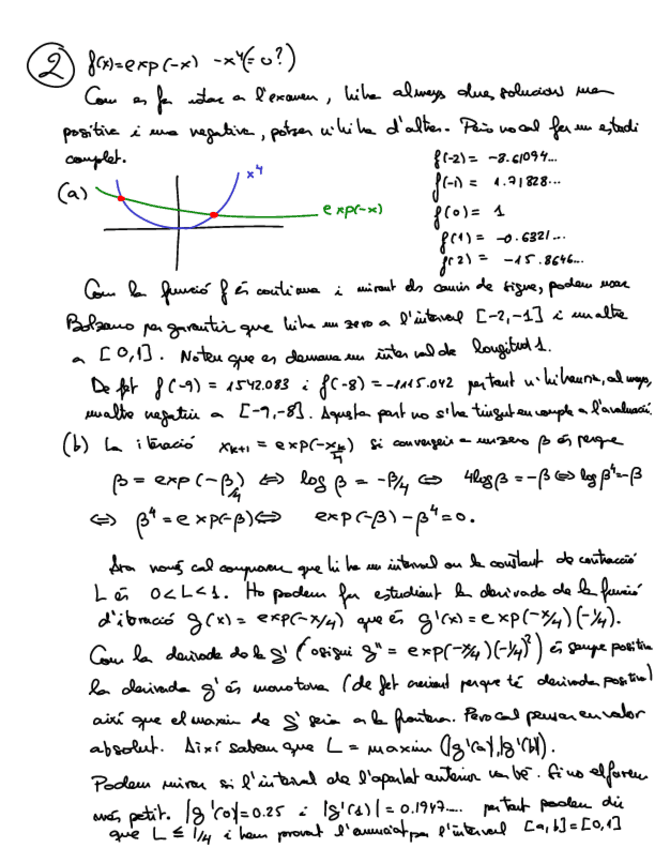 2 f(x)=exp(-x) -x⁴(=0?)
Com es fa notar a l'examen, hi ha almenys dues solucions una
positiva i una negativa, potser n'hi ha d'altres. Però no cal fer un estudi
complet.
(a)
x⁴
exp(-x)
f(-2) = -8.61094...
f(-1) = 1.71828...
f(0) = 1
f(1) = -0.6321...
f(2) = -15.8646...
Com la funció f és contínua i mirant els canvis de signe, podem usar
Bolzano per garantir que hi ha un zero a l'interval [-2,-1] i un altre
a [0,1]. Noteu que es demana un interval de longitud 1.
De fet f(-9) = 1542.083 i f(-8) = -1115.042 per tant n'hi hauria, almenys,
un altre negatiu a [-9,-8]. Aquesta part no s'ha tingut en compte a l'avaluació.
(b) La iteració x_{k+1} = exp(-x_k/4) si convergeix a un zero β és perquè
β = exp(-β/4) ⇔ log β = -β/4 ⇔ 4logβ = -β ⇔ log β⁴=-β
⇔ β⁴ = exp(-β) ⇔ exp(-β) - β⁴ = 0.
Ara només cal comprovar que hi ha un interval on la constant de contracció
L és 0<L<1. Ho podem fer estudiant la derivada de la funció
d'iteració g(x) = exp(-x/4) que és g'(x) = exp(-x/4)(-1/4).
Com la derivada de la g' (o sigui g'' = exp(-x/4)(-1/4)²) és sempre positiva
la derivada g' és monòtona (de fet creixent perquè té derivada positiva)
així que el màxim de g' seria a la frontera. Però cal pensar en valor
absolut. Així sabem que L = màxim (|g'(a)|,|g'(b)|).
Podem mirar si l'interval de l'apartat anterior va bé. Si no el farem
més petit. |g'(0)|=0.25 i |g'(1)| = 0.1947.... per tant podem dir
que L ≤ 1/4 i hem provat l'enunciat per l'interval [a,b]=[0,1]